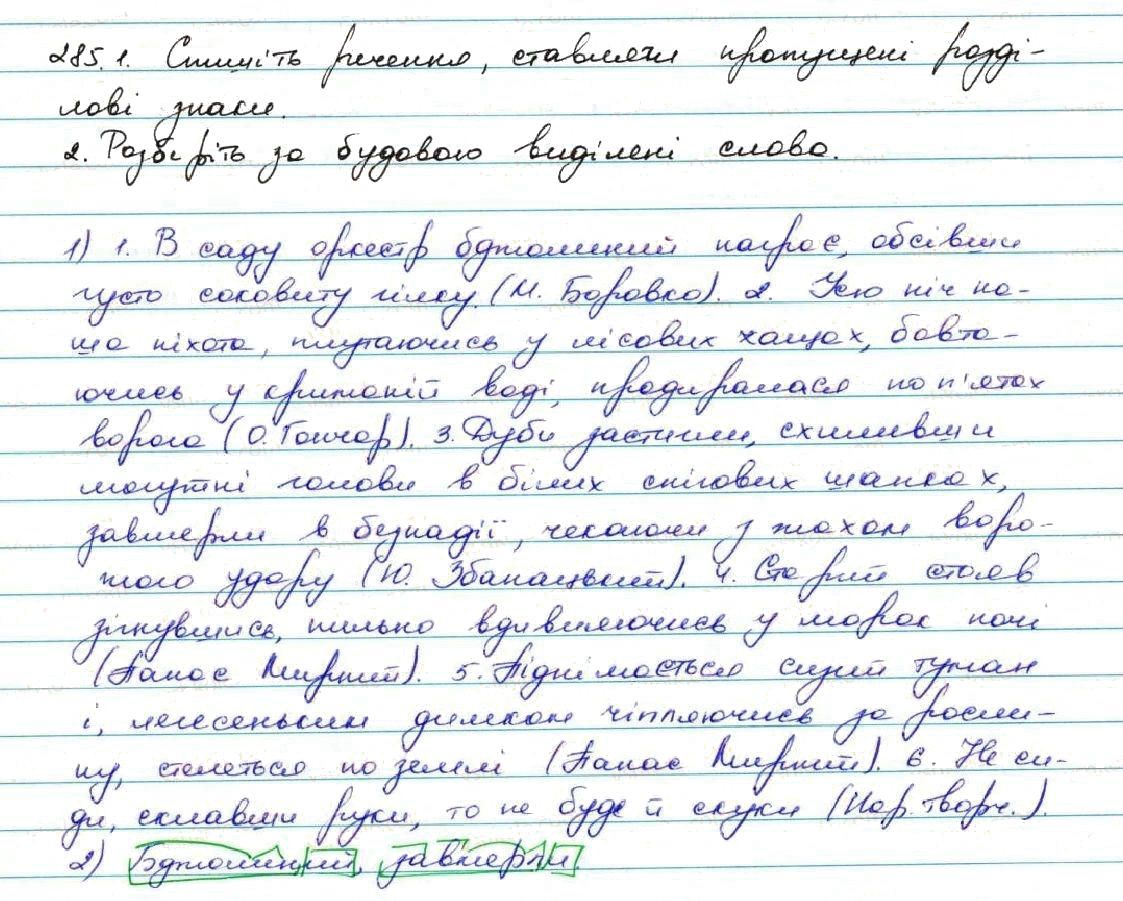 285.1. Спишіть речення, ставлячи пропущені розді-
лові знаки.
2. Розберіть за будовою виділені слова.
1) 1. В саду оркестр бджолиний награє, обсівши
густо соковиту гілку (М. Боровко). 2. Усю ніч на-
ша піхота, плутаючись у лісових хащах, бовта-
ючись у крижаній воді, продиралася по п'ятах
ворога (О. Гончар). 3. Дуби застигли, схиливши
могутні голови в білих снігових шапках,
завмерли в безнадії, чекаючи з жахом воро-
жого удару (Ю. Збанацький). 4. Старий стояв
зігнувшись, пильно вдивляючись у морок ночі
(Панас Мирний). 5. Піднімається сизий туман
і, легесеньким димком чіпляючись за росли-
ну, стелеться по землі (Панас Мирний). 6. Не си-
ди, склавши руки, то не буде й скуки (Нар. творч.).
2) Бджолиний, завмерли.